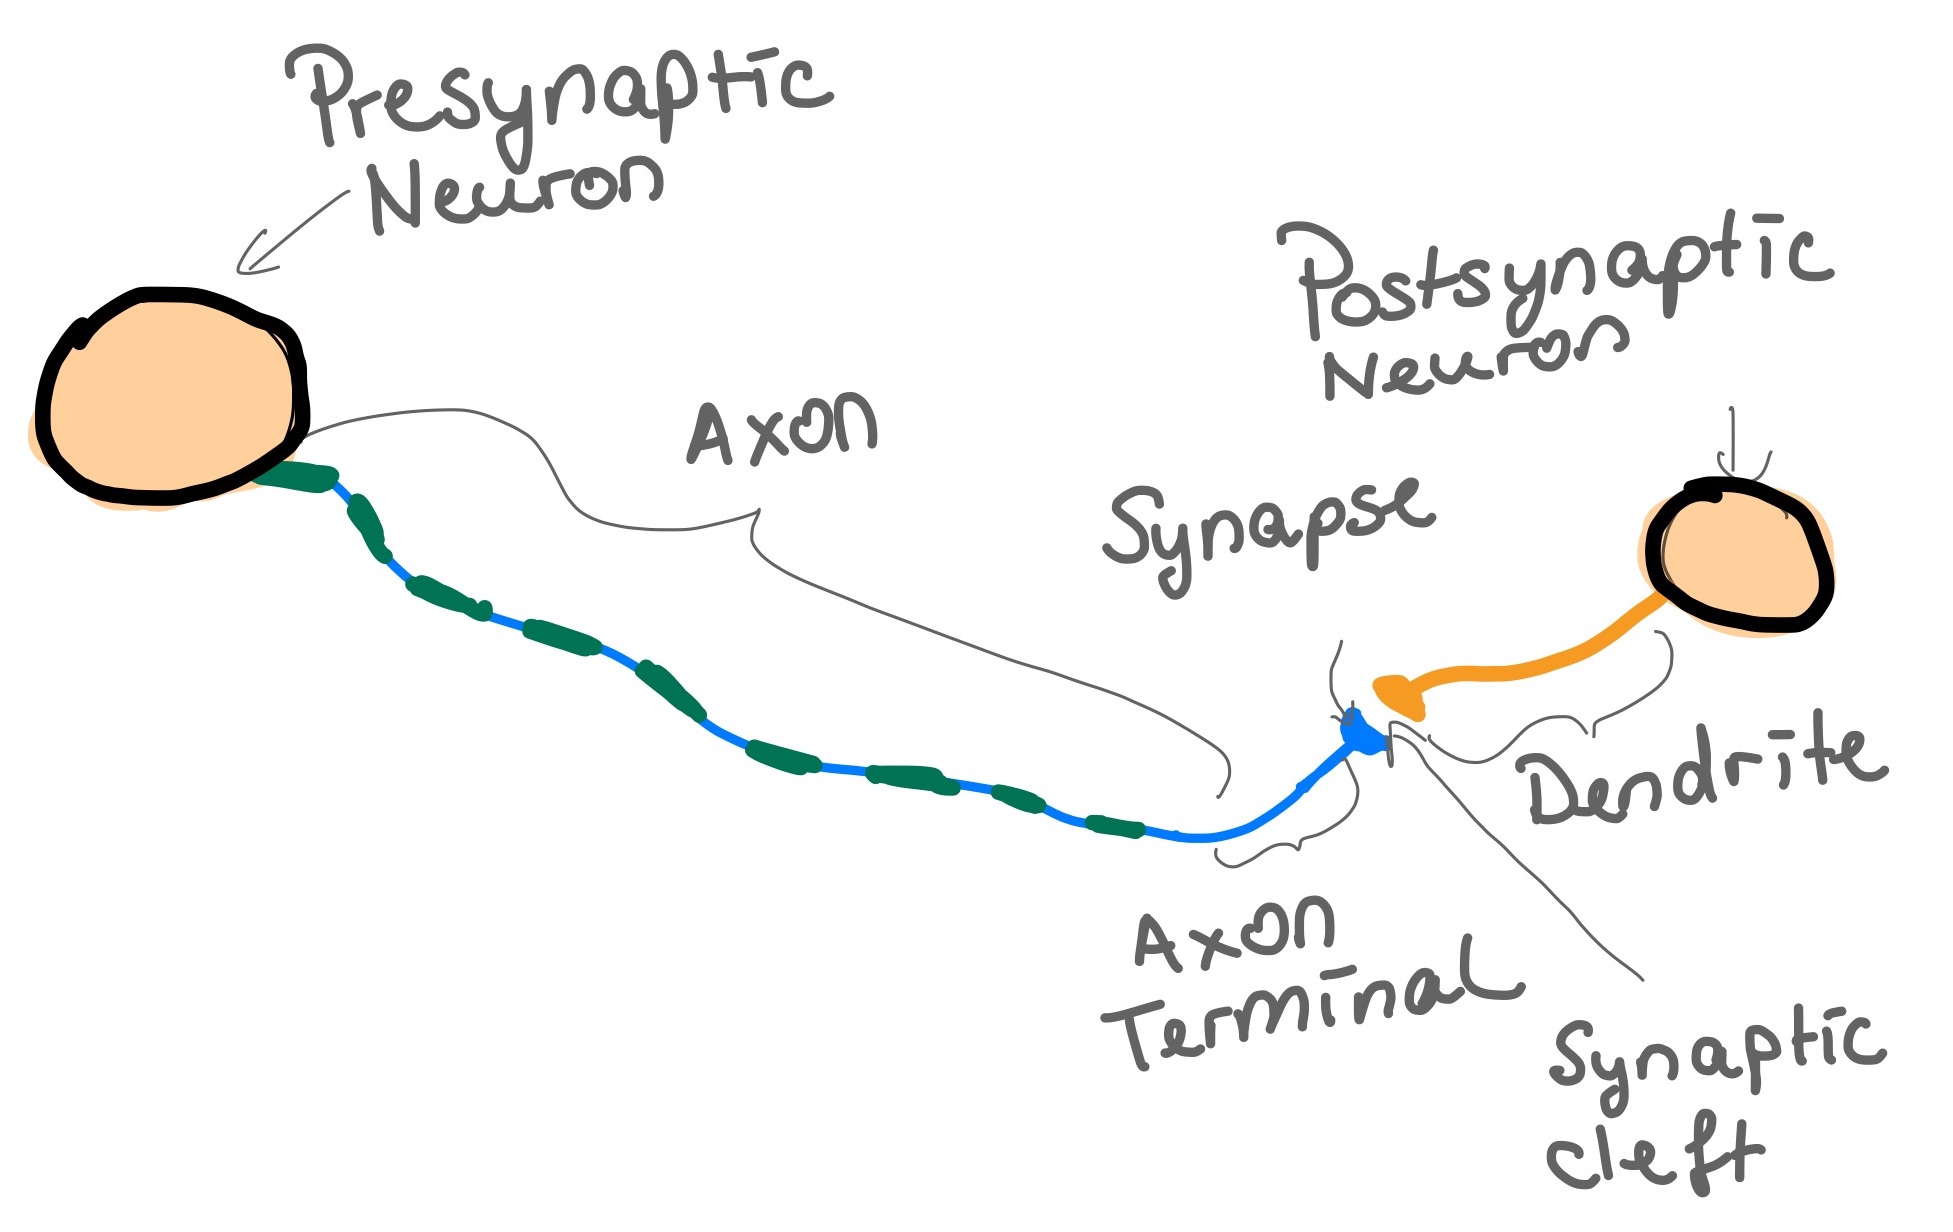 Presynaptic
Neuron
Postsynaptic
Neuron
Axon
Synapse
Dendrite
Axon
Terminal
Synaptic
cleft